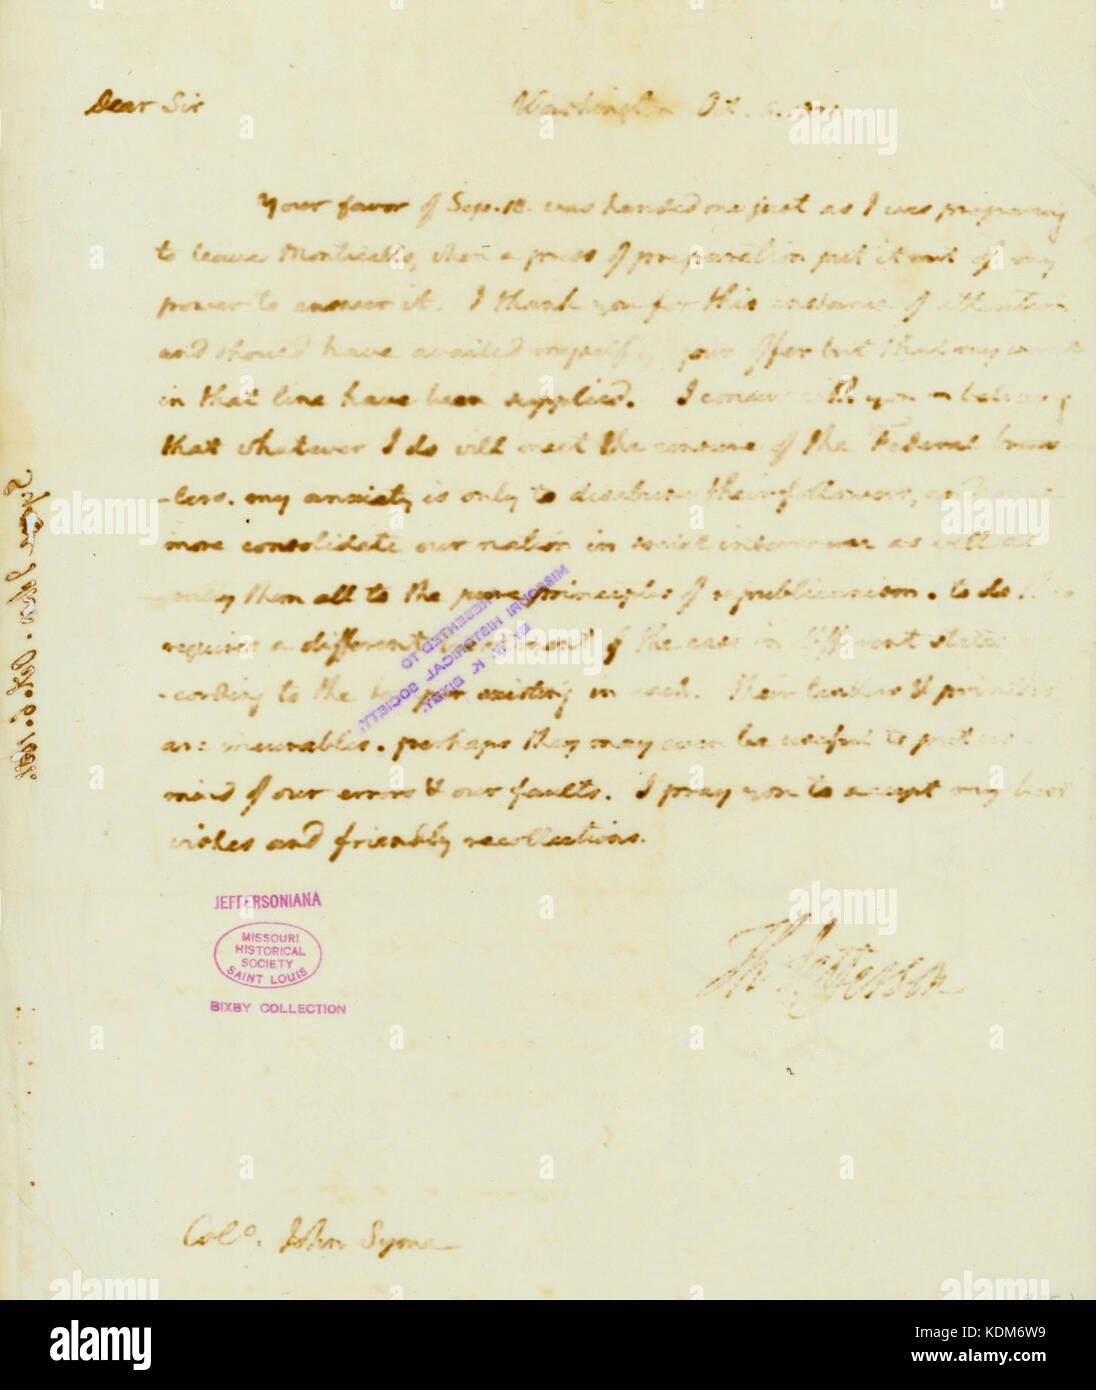 Dear Sir
Washington Oct. 6. 1801.
Your favor of Sep. 18. was handed me just as I was preparing
to leave Monticello, when a press of preparation put it out of my
power to answer it. I thank you for this instance of attention
and should have availed myself of your offer but that my wants
in that line have been supplied. I concur with you in believing
that whatever I do will meet the censure of the Federal
-lers. my anxiety is only to disabuse their followers, and
more consolidate our nation in social intercourse as well as
them all to the pure principles of republicanism. to do this
requires a different treatment of the case in different states
-cording to the temper existing in each. their leaders &
are incurables. perhaps they may even be useful to put us in
mind of our errors & our faults. I pray you to accept my best
wishes and friendly recollections.
Th Jefferson
MISSOURI HISTORICAL SOCIETY.
PRESENTED TO
BY W. K. BIXBY.
JEFFERSONIANA
MISSOURI
HISTORICAL
SOCIETY
SAINT LOUIS
BIXBY COLLECTION
Colo. John Syme
Syme John. Oct. 6. 1801.
a alamy
alamy
Image ID: KDM6W9
www.alamy.com